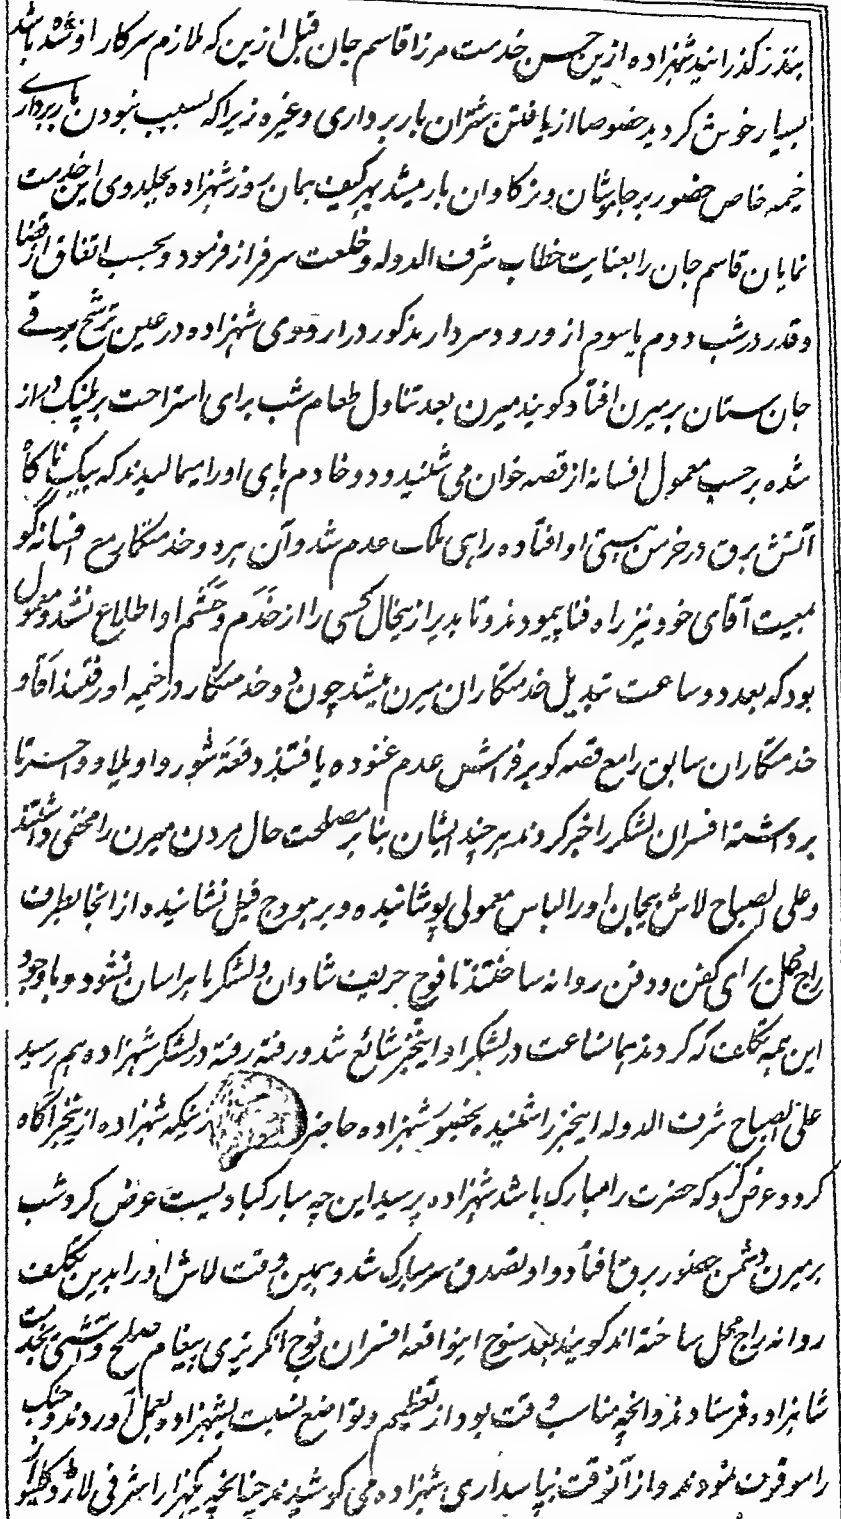 بنذر گذرانید شهزاده ازین حسن خدمت مرزا قاسم جان قبل ازین که ملازم سرکار او شده باشد
بسیار خوش گردید خصوصا از یافتن شتران باربرداری وغیره زیرا که بسبب نبودن باربرداری
خیمه خاص حضور بر چارپایان و نرگاوان بار میشد بهرکیف همان روز شهزاده بجلدوی این خدمت
نمایان قاسم جان را بعنایت خطاب شرف الدوله و خلعت سرفراز فرمود و بحسب اتفاق از قضا
و قدر در شب دوم یا سوم از ورود سردار مذکور در اردوی شهزاده در عین ترشح برقے
جان ستان بر میرن افتاد گویند میرن بعد تناول طعام شب برای استراحت بر پلنگ دراز
شده بر حسب معمول افسانه از قصه خوان می شنید و دو خادم پای او را میمالیدند که بیک ناگاه
آتش برق در خرمن هستی او افتاده راهی ملک عدم شد و آن هر دو خدمتگار مع افسانه گو
بمعیت آقای خود نیز راه فنا پیمودند و تا بدیر ازینحال کسی را از خَدَم و حَشَم او اطلاع نشد و معمول
بود که بعد دو ساعت تبدیل خدمتگاران میرن میشد چون دو خدمتگار در خیمه او رفتند آقا و
خدمتگاران سابق را مع قصه گو بر فراش عدم غنوده یافتند دفعةً شور واویلا و واحسرتا
برداشته افسران لشکر را خبر کردند هر چند ایشان بنا بر مصلحت حال مردن میرن را مخفی داشتند
و علی الصباح لاش بیجان او را لباس معمولی پوشانیده و بر هودج فیل نشانیده از انجا بطرف
راج محل برای کفن و دفن روانه ساختند تا فوج حریف شادان و لشکر ما هراسان نشود و باوجود
این همه تکلف که کردند همانساعت در لشکر او اینخبر شائع شد و رفته رفته در لشکر شهزاده هم رسید
علی الصباح شرف الدوله اینخبر را شنیده بحضور شهزاده حاضر زینکه شهزاده ازینخبر آگاه
گردد عرض کرد که حضرت را مبارک باشد شهزاده پرسید این چه مبارکباد یست عرض کرد شب
بر میرن دشمن حضور برق افتاد و او تصدق سر مبارک شد و همین وقت لاش او را بدین تکلف
روانه راج محل ساخته اند گویند بعد سنوح اینواقعه افسران فوج انگریزی پیغام صلح و آشتی بخدمت
شاهزاده فرستادند و انچه مناسب وقت بود از تعظیم و تواضع نسبت بشهزاده بعمل آوردند و جنگ
را موقوف نمودند و از آنوقت بپاسداری شهزاده می کوشیدند چنانچه یکهزار اشرفی لارڈ کلیو